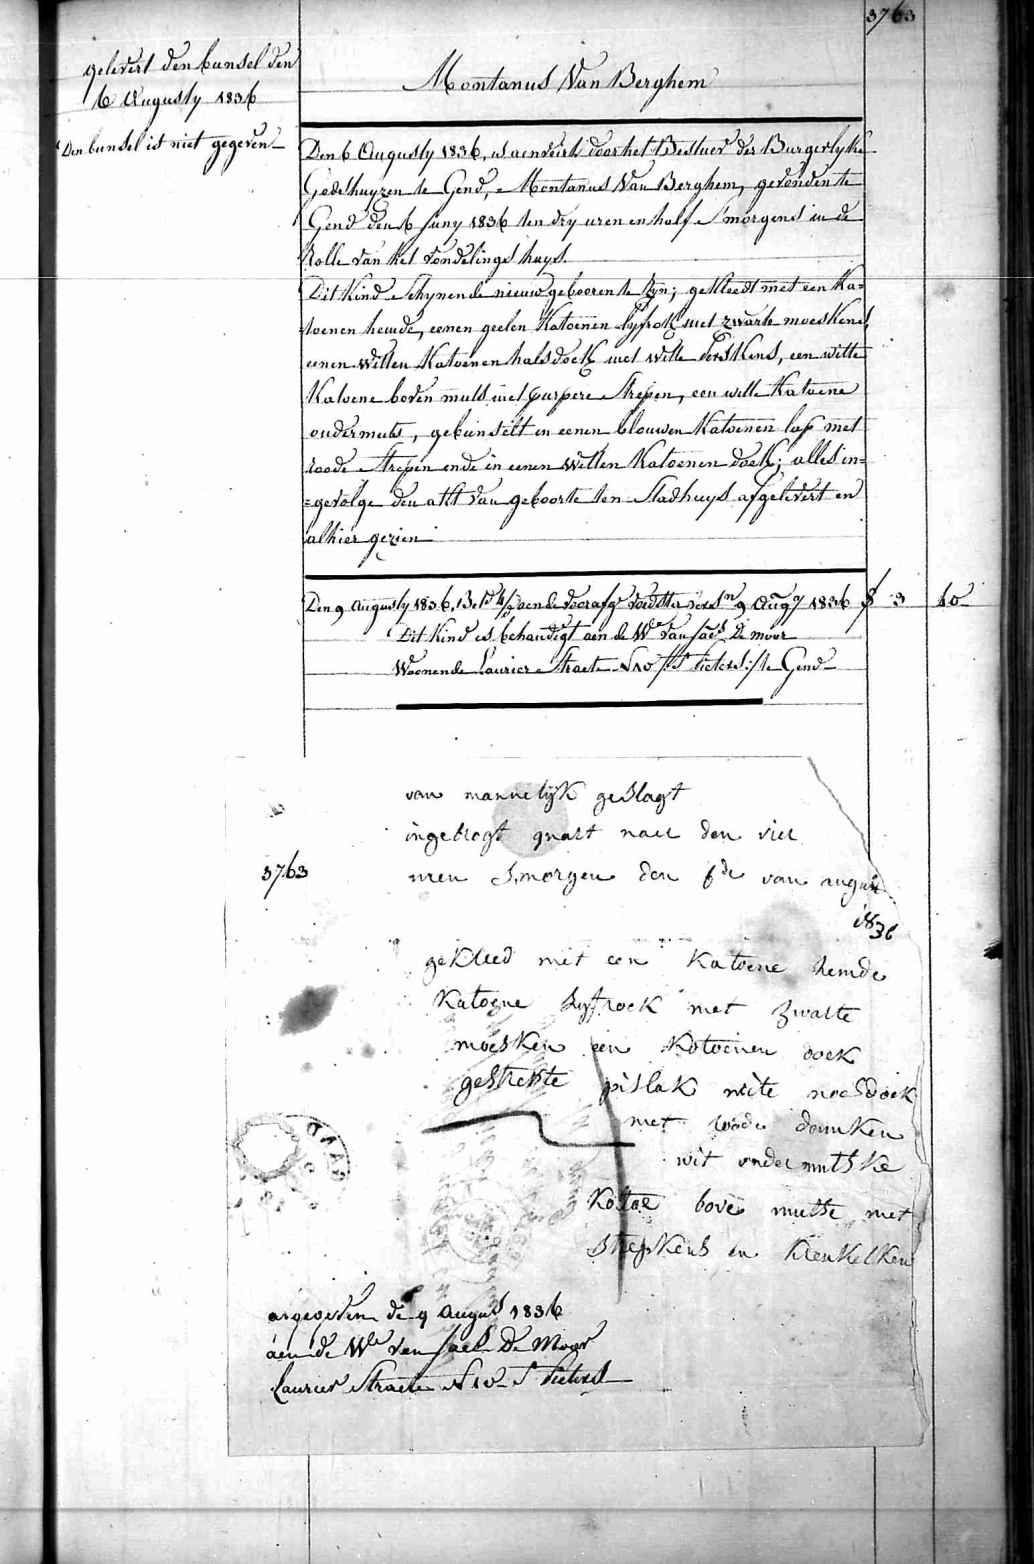 3763
gelevert den bunsel den
6 Augusty 1836
Den bunsel is niet gegeven
Montanus Van Berghem
Den 6 Augusty 1836, is aenveirt door het Bestuer der Burgerlyke
Godshuyzen te Gend, Montanus Van Berghem, gevonden te
Gend den 6 Juny 1836 ten dry uren en half s'morgens in de
rolle van het vondelings huys.
Dit Kind schynende nieuw gebooren te zyn; gekleedt met een Ka=
toenen hemde, eenen geelen Katoenen lyfrok met zwarte moeskens,
eenen witten Katoenen halsdoek met witte persKens, een witte
Katoene boven muts met purpere strepen, een witte Katoene
ondermuts, gebunselt in eenen blouwen Katoenen lap met
roode strepen ende in eenen witten Katoenen doek; alles in=
=gevolge den akt van geboorte ten Stadhuys afgelevert en
alhier gezien
Den 9 Augusty 1836, aen de voorafge voedster 9 Augy 1836 3 60
Dit Kind is behandigt aen de We van Jaes De moor
Woonende Laurier Straete N 10 /: St Pieters :/ te Gend
van mannelijk geslagt
ingebrogt quart naer den vier
3763
uren s,morgen den 6de van august
1836
gekleed met een Katoene hemde
Katoene lyfrock met zwarte
moesken een Kotoenen doek
gestrekte pislak wite neesdoek
met roode
wit onder mutske
Kotoe bove mutse met
strepkens en Krenkelken
GAND
de 9 August 1836
aen de We van Jaes De Moor
Laurier Straete N 10 St Pieters